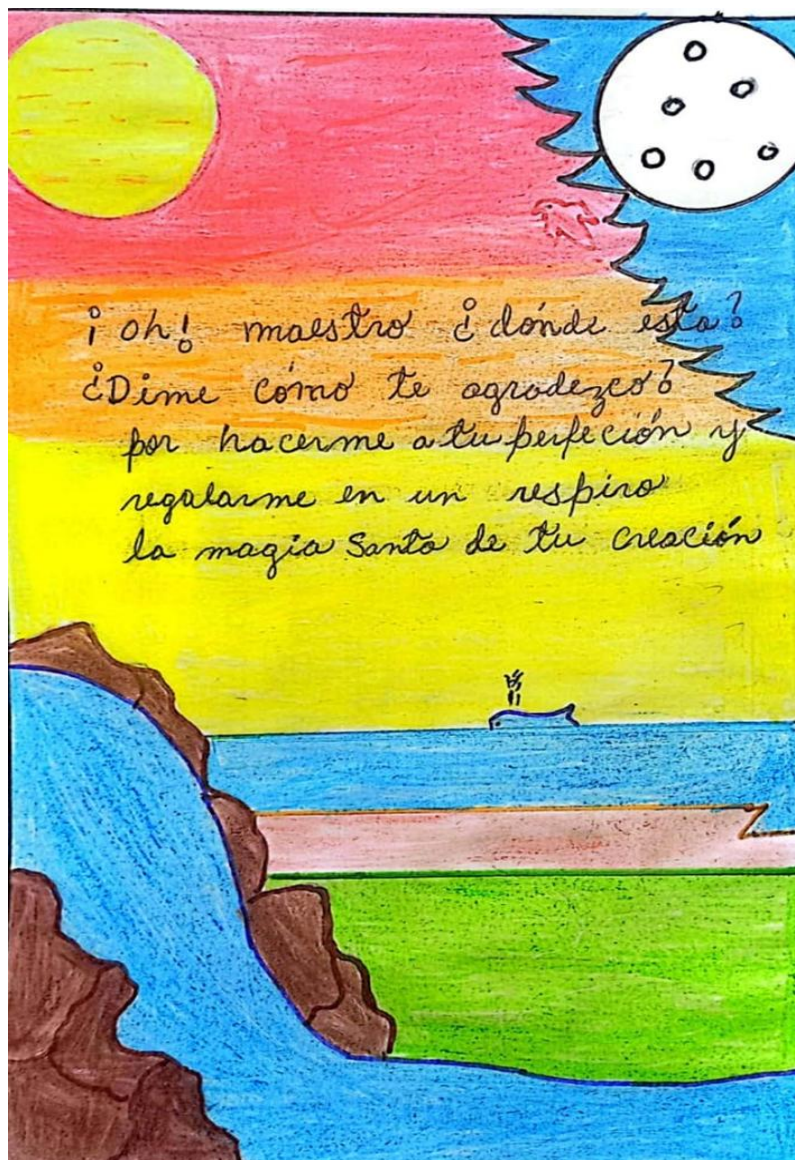 ¡oh! maestro ¿dónde esta?
¿Dime cómo te agradezco?
por hacerme a tu perfeción y
regalarme en un respiro
la magia Santa de tu creación